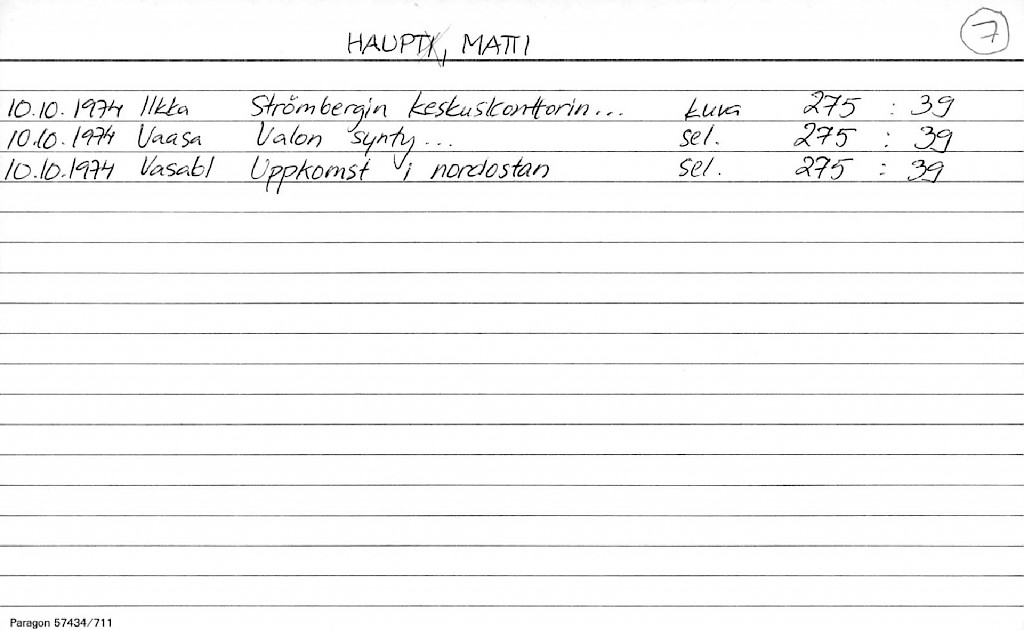 HAUPT, MATTI 7
10.10.1974 Ilkka Strömbergin keskuskonttorin... kuva 275 : 39
10.10.1974 Vaasa Valon synty... sel. 275 : 39
10.10.1974 Vasabl Uppkomst i nordostan sel. 275 : 39
Paragon 57434/711